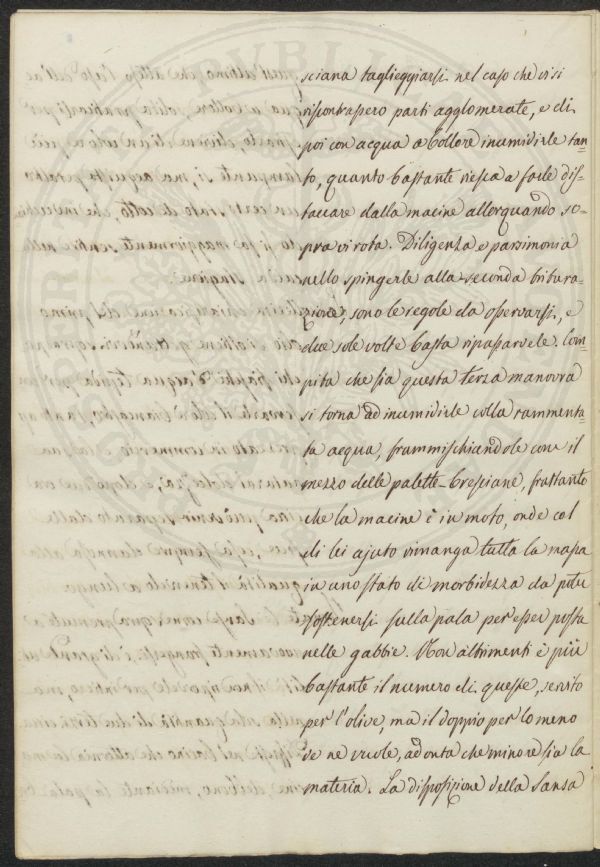 sciana taglieggiarsi nel caso che visi
riscontrassero parti agglomerate, e di
poi con acqua a bollore incumidirle tan=
to, quanto bastante riesca a farle dis=
taccare dalla macine allorquando so=
pra vi rota. Diligenza e parsimonia
nello spingerle alla seconda tritura=
zione, sono le regole da osservarsi, e
due sole volte basta ripassarvele. Com=
pita che sia questa terza manovra
si torna ad incumidirle colla rammenta=
ta acqua, frammischiandole con il
mezzo delle palette-bresciane, frattanto
che la macine è in moto, onde col
di lei ajuto rimanga tutta la massa
in uno stato di morbidezza da poter
sostenersi sulla pala per esser posta
nelle gabbie. Non altrimenti è più
bastante il numero di queste, servito
per l'olive, ma il doppio per lo meno
ve ne vuole, ad onta che minore sia la
materia. La disposizione della Sansa